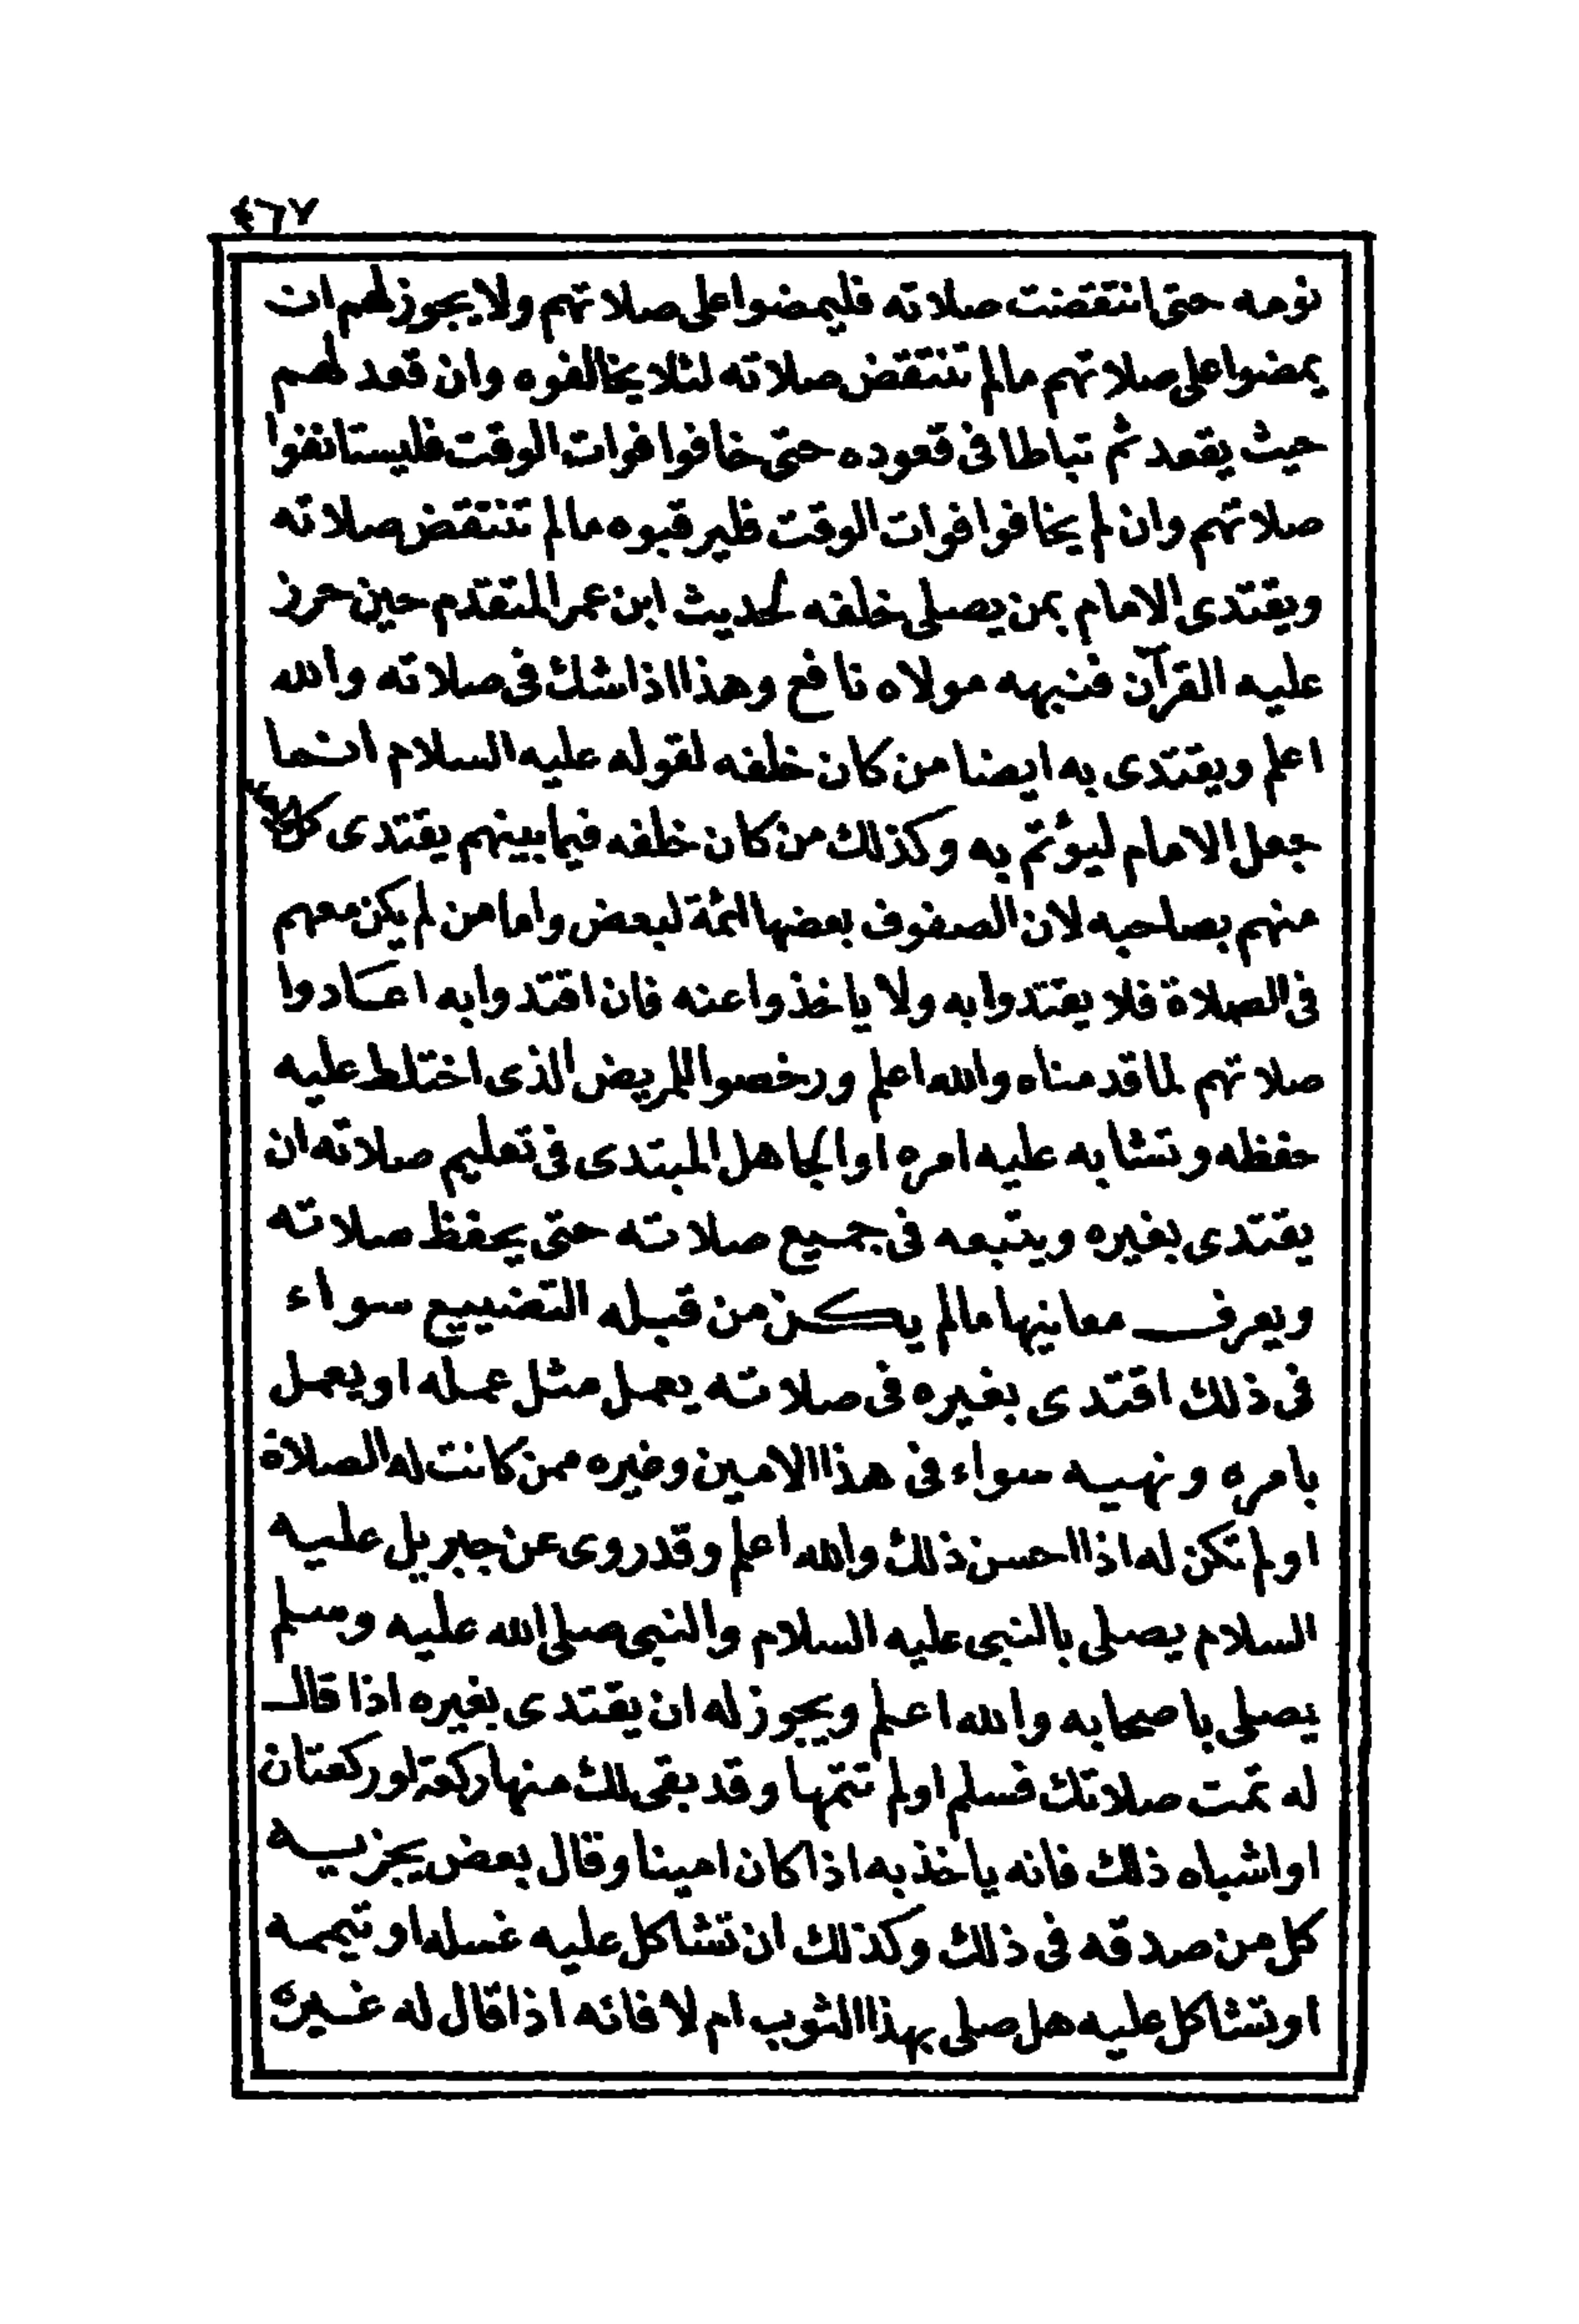 ٤٦٧
نومه حتى انتقضت صلاته فليمضوا على صلاتهم ولا يجوز لهم ان
يمضوا على صلاتهم مالم تنتقض صلاته لئلا يخالفوه وان قعد لهم
حيث يقعد ثم تباطا فى قعوده حتى خافوا فوات الوقت فليستانفوا
صلاتهم وان لم يخافوا فوات الوقت فليرقبوه مالم تنتقض صلاته
ويقتدى الامام بمن يصلى خلفه لحديث ابن عمر المتقدم حين حرز
عليه القرآن فنبهه مولاه نافع وهذا اذا شك فى صلاته والله
اعلم ويقتدى به ايضا من كان خلفه لقوله عليه السلام انما
جعل الامام ليؤتم به وكذلك من كان خلفه فيما بينهم يقتدى كل
منهم بصاحبه لان الصفوف بعضها ائمة لبعض واما من لم يكن معهم
فى الصلاة فلا يقتدوا به ولا ياخذوا عنه فان اقتدوا به اعادوا
صلاتهم لما قدمناه والله اعلم ورخصوا للمريض الذى اختلط عليه
حفظه وتشابه عليه امره او الجاهل المبتدى فى تعليم صلاته ان
يقتدى بغيره ويتبعه فى جميع صلاته حتى يحفظ صلاته
ويعرف معانيها مالم يكن من قبله التضييع سواء
فى ذلك اقتدى بغيره فى صلاته يعمل مثل عمله او يعمل
بامره ونهيه سواء فى هذا الامين وغيره ممن كانت له الصلاة
او لم تكن له اذا احسن ذلك والله اعلم وقد روى عن جبريل عليه
السلام يصلى بالنبى عليه السلام والنبى صلى الله عليه وسلم
يصلى باصحابه والله اعلم ويجوز له ان يقتدى بغيره اذا قال
له تمت صلاتك فسلم او لم تتمها وقد بقى لك منها ركعة او ركعتان
او اشباه ذلك فانه ياخذ به اذا كان امينا وقال بعض يجزيه
كل من صدقه فى ذلك وكذلك ان تشاكل عليه غسله او تيممه
او تشاكل عليه هل صلى بهذا الثوب ام لا فانه اذا قال له غيره